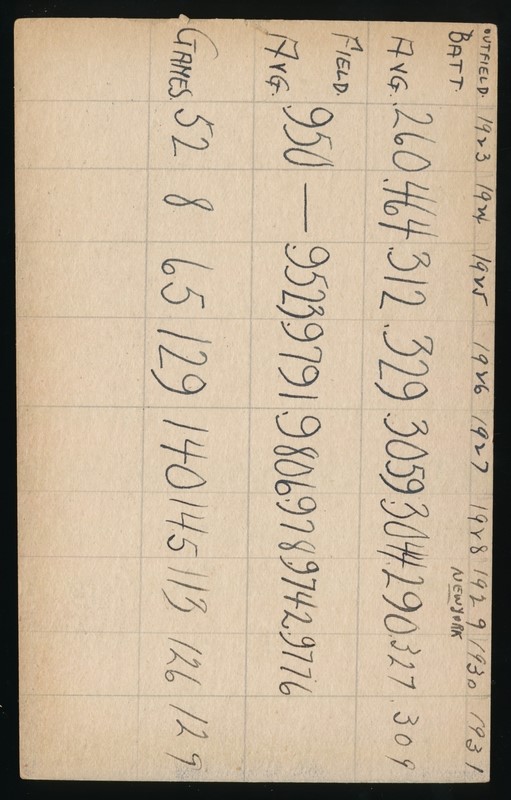 OUTFIELD. 1923 1924 1925 1926 1927 1928 1929 1930 1931
BATT. NEW YORK
AVG. .260 .464 .312 .329 .3059 .3044 .290 .327 .309
FIELD.
AVG. .950 — .9523 .9791 .9806 .978 .9742 .9776
GAMES. 52 8 65 129 140 145 113 126 129